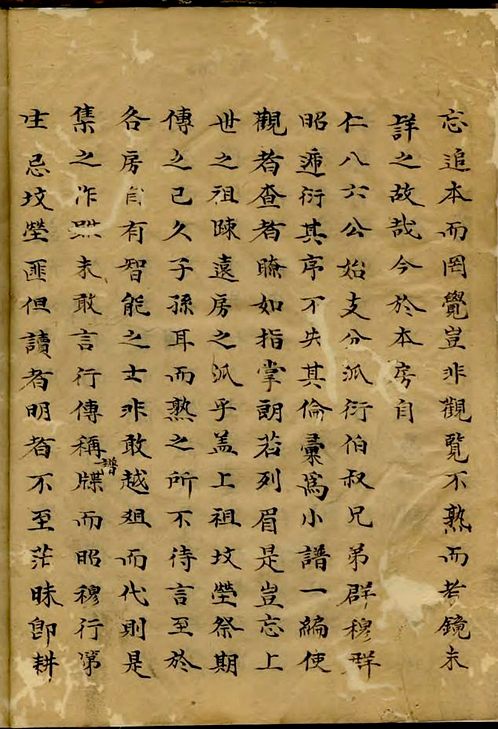 忘追本而罔覺豈非觀覽不熟而考鏡未
詳之故哉今於本房自
仁八六公始支分派衍伯叔兄弟群穆群
昭遞衍其序不失其倫彙為小譜一編使
觀者查者瞭如指掌朗若列眉是豈忘上
世之祖踈遠房之派乎盖上祖坟塋祭期
傳之已久子孫耳而熟之所不待言至於
各房自有智能之士非敢越俎而代則是
集之作雖未敢言行傳稱譜牒而昭穆行第
生忌坟塋匪但讀者明者不至茫昧即耕